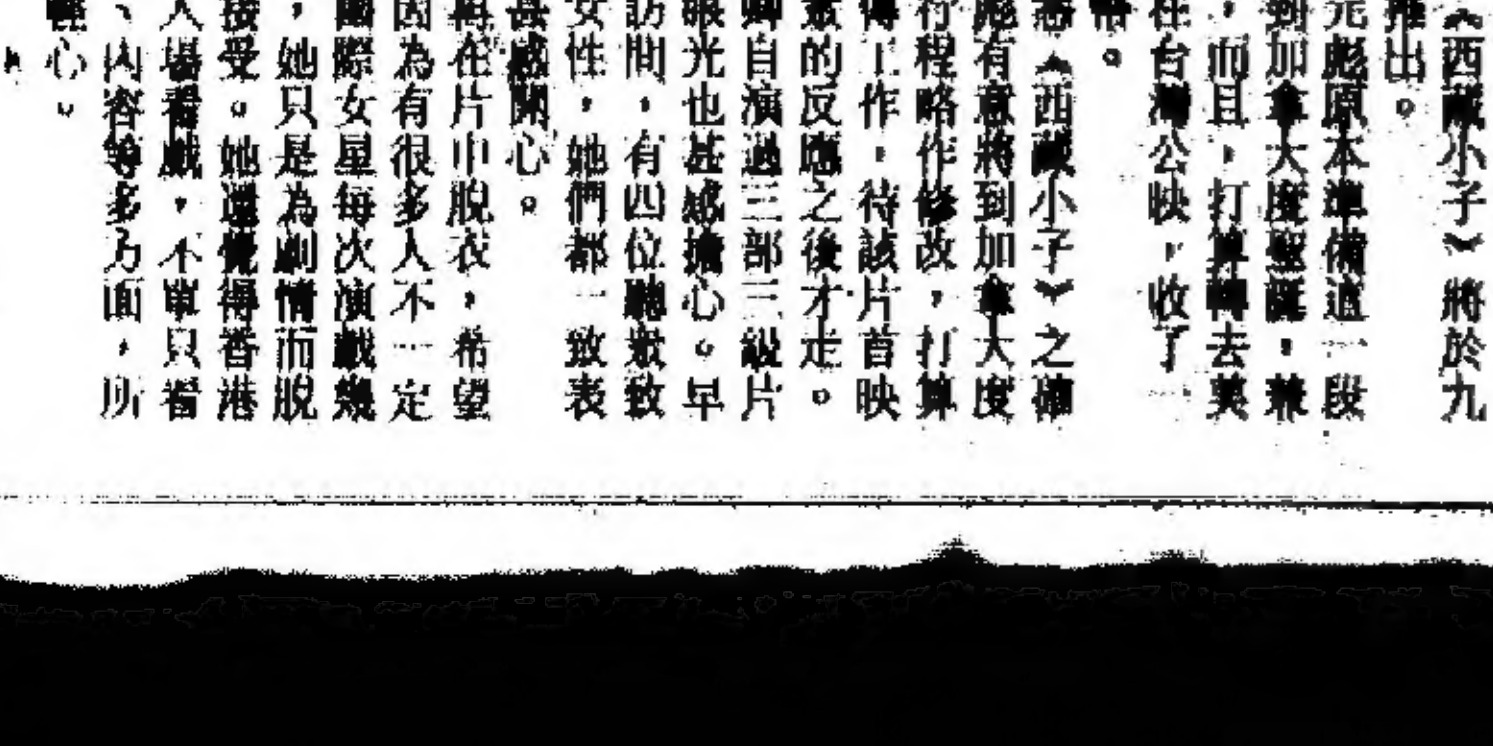 《西藏小子》將於九
推出。
元彪原本準備這一段
到加拿大度聖誕,兼
,而且,打算轉去美
在台灣公映,收了一
。
悉《西藏小子》之確
彪有意將到加拿大度
行程略作修改,打算
傳工作,待該片首映
眾的反應之後才走。
卿自演過三部三級片
眼光也甚感擔心。早
訪間,有四位聽眾致
女性,她們都一致表
甚感關心。
再在片中脫衣,希望
因為有很多人不一定
國際女星每次演戲幾
,她只是為劇情而脫
接受。她還覺得香港
入場看戲,不單只看
、內容等多方面,所
心。